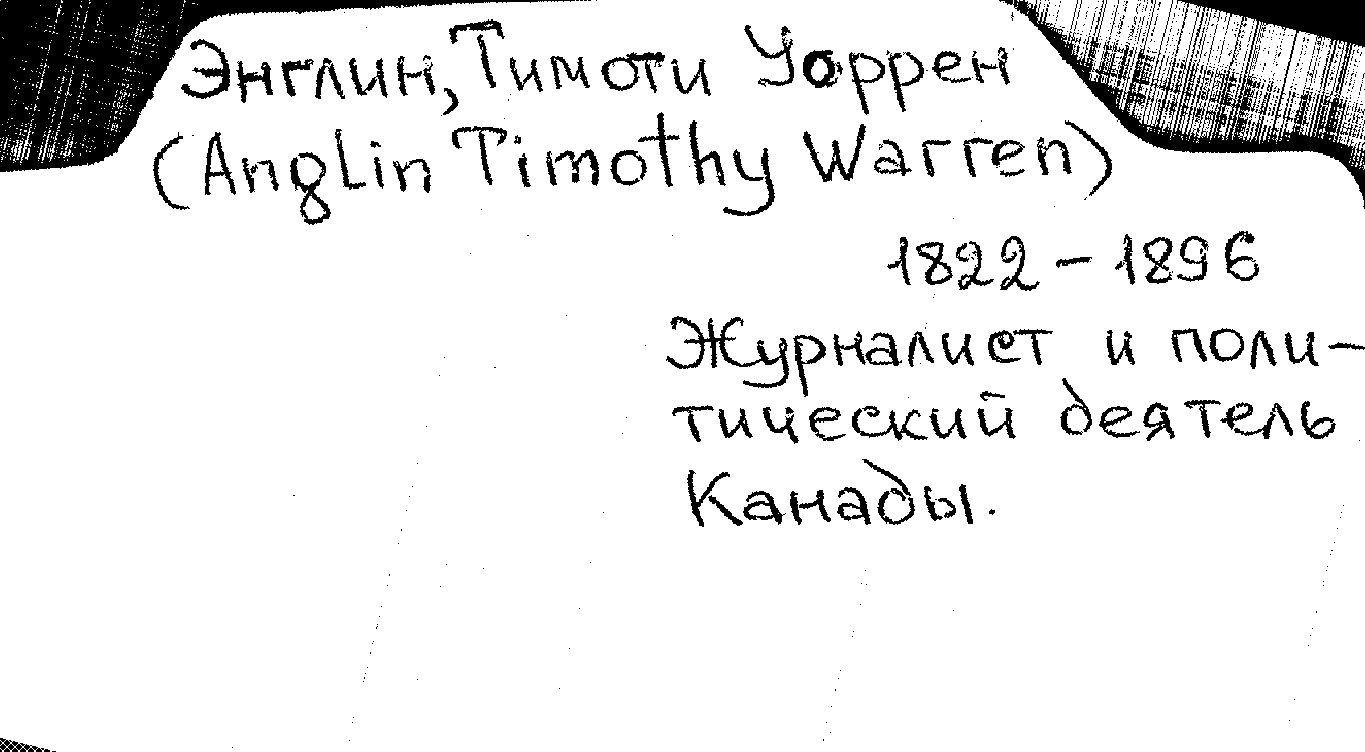 Энглин, Тимоти Уоррен
(Anglin Timothy Warren)
1822 – 1896
Журналист и поли-
тический деятель
Канады.